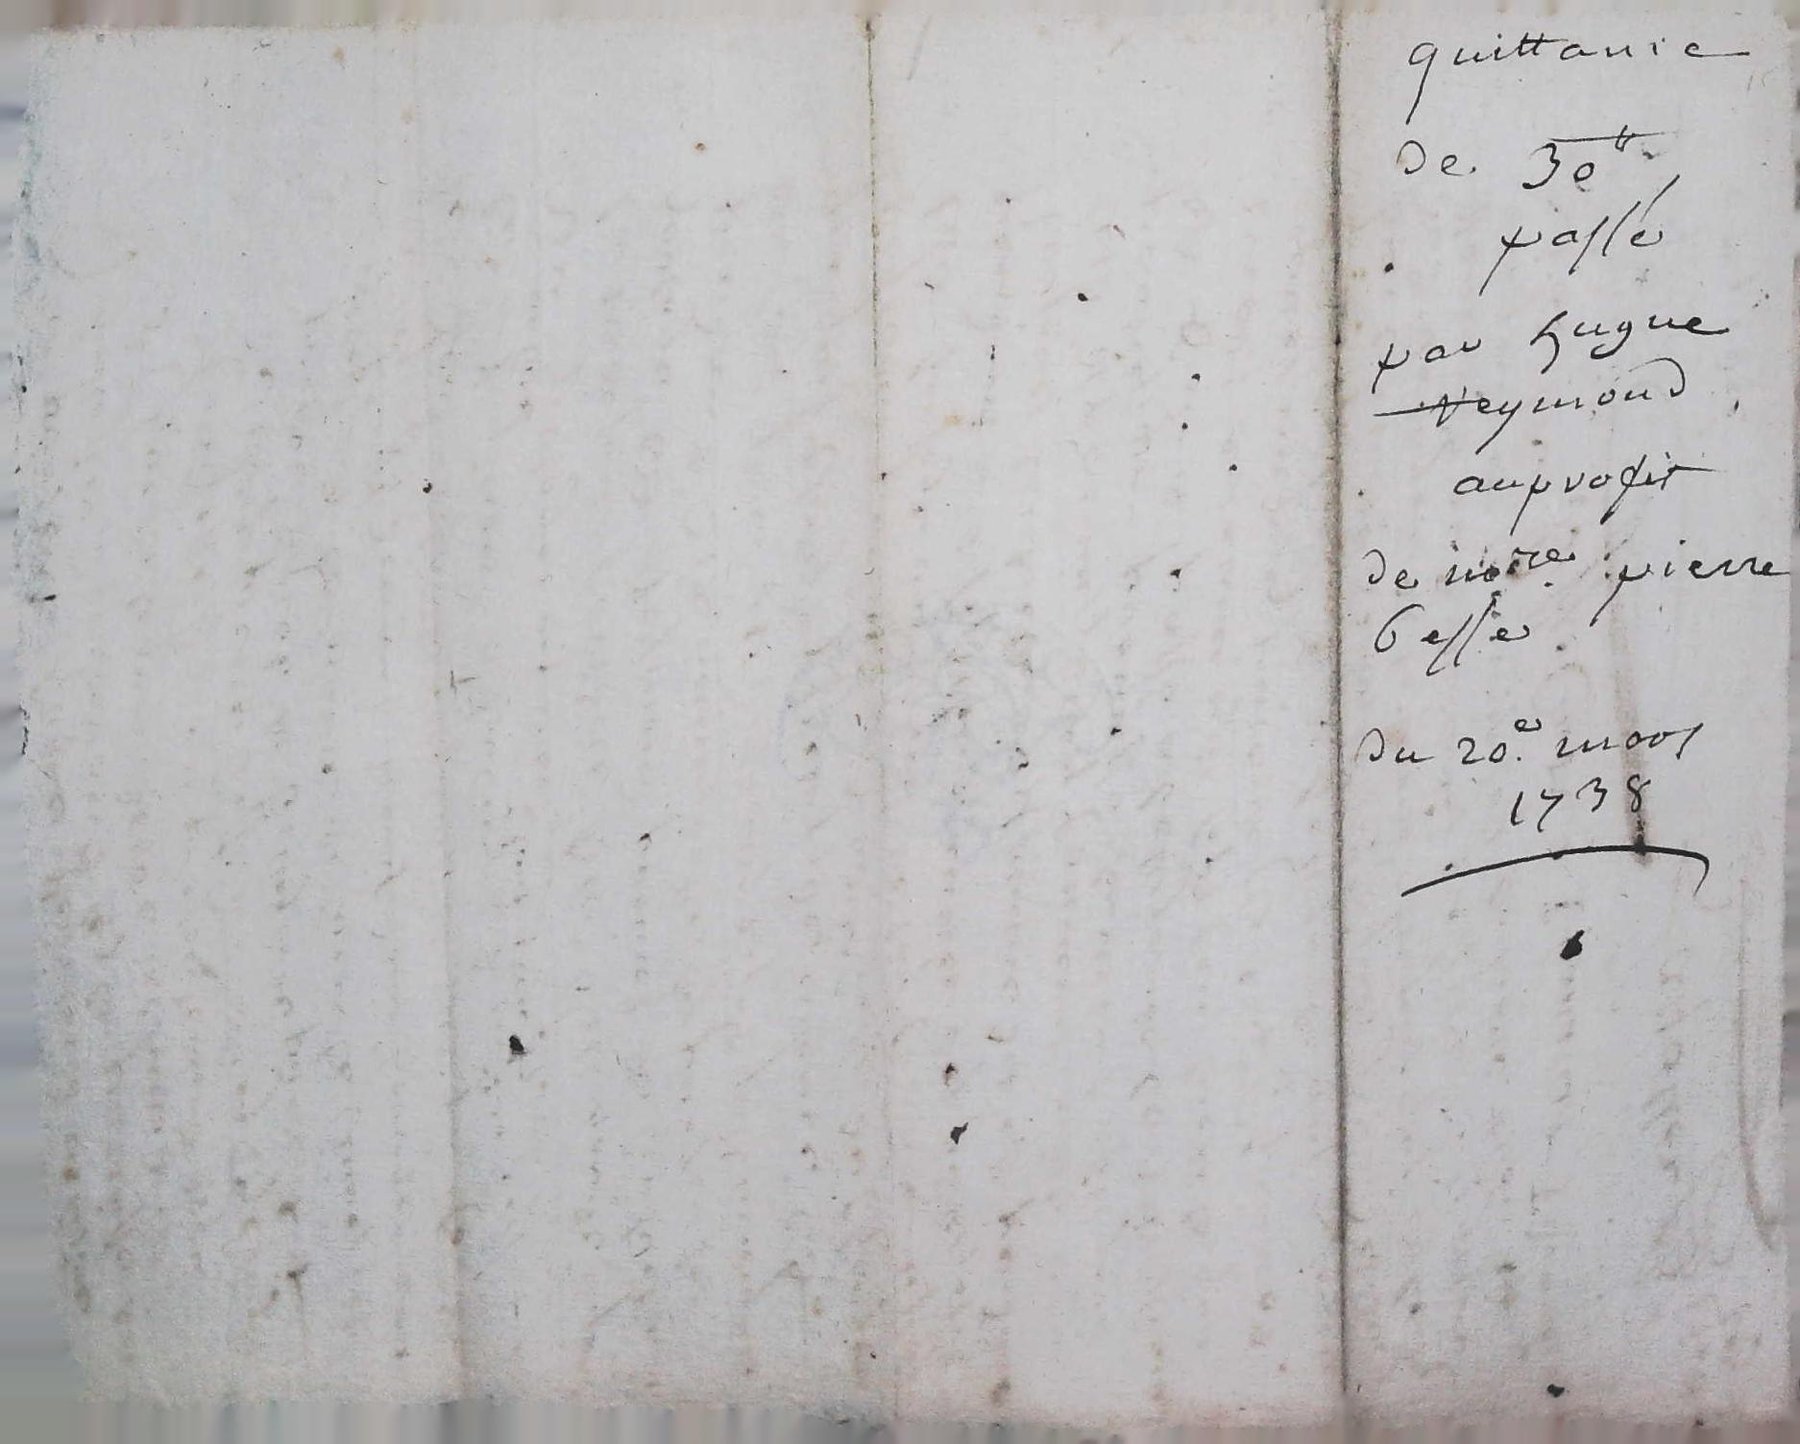 quittance
de 30tt
passé
par hugue
Reymond
au profit
de no.re pierre
besse
du 20.e mars
1738